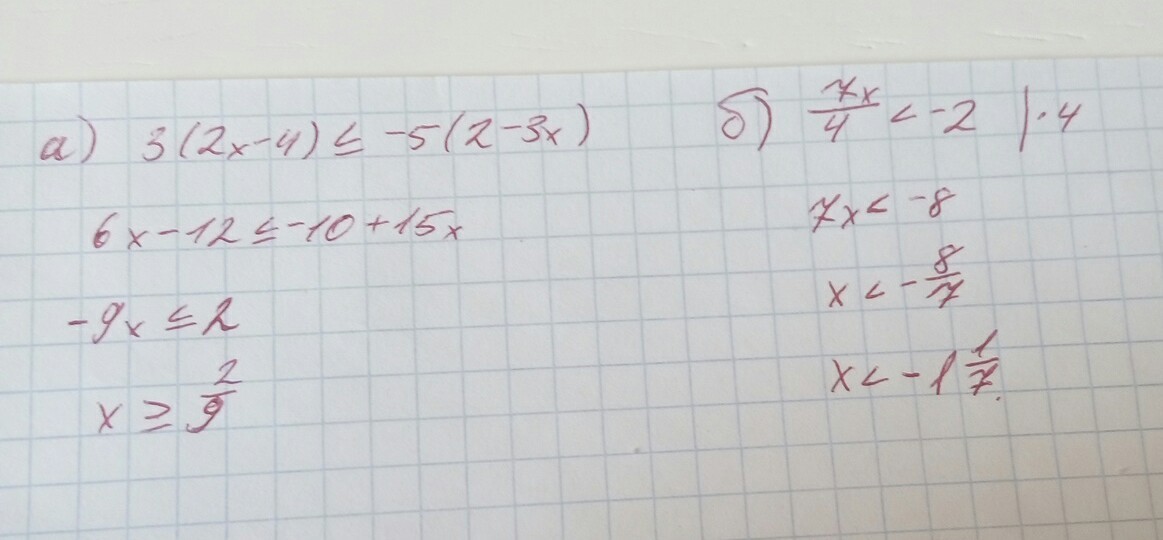 а) 3(2x-4) ≤ -5(2-3x)
6x-12 ≤ -10+15x
-9x ≤ 2
x ≥ 2/9
б) 7x/4 < -2 |·4
7x < -8
x < -8/7
x < -1 1/7.